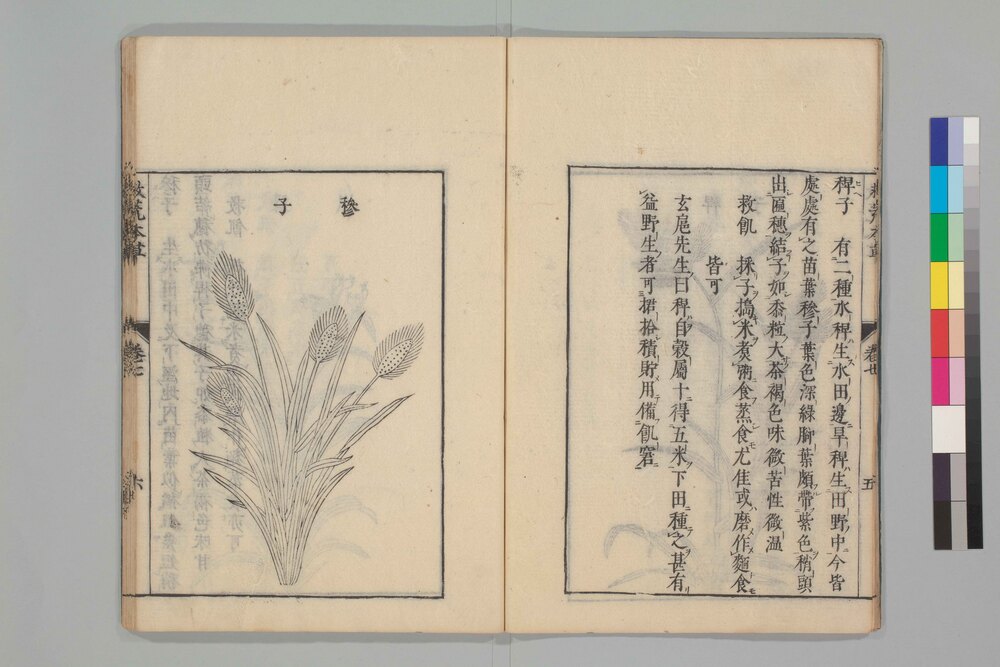 稗子　有二種水稗生水田邊旱稗生田野中今皆
處處有之苗葉䅟子葉色深綠脚葉頗帶紫色稍頭
出匾穗結子如黍粒大茶褐色味微苦性微温
救飢　採子搗米煮粥食蒸食尤佳或磨作麵食
皆可
玄扈先生曰稗自穀屬十得五米下田種之甚有
益野生者可捃拾積貯用備飢窘
五
䅟子
救荒本草
卷七
六